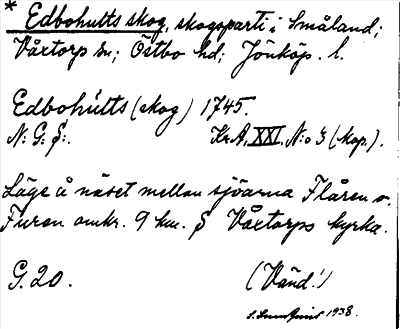 * Edbohults skog, skogsparti i Småland;
Våxtorp sn; Östbo hd; Jönköp. l.
Edbohults (skog) 1745.
N: G: S:. Kr.A. XXI. N:o 3 (kop.).
Läge å näset mellan sjöarna Flåren o.
Furen omkr. 9 km. S Våxtorps kyrka.
G. 20. (Vänd!)
1938.